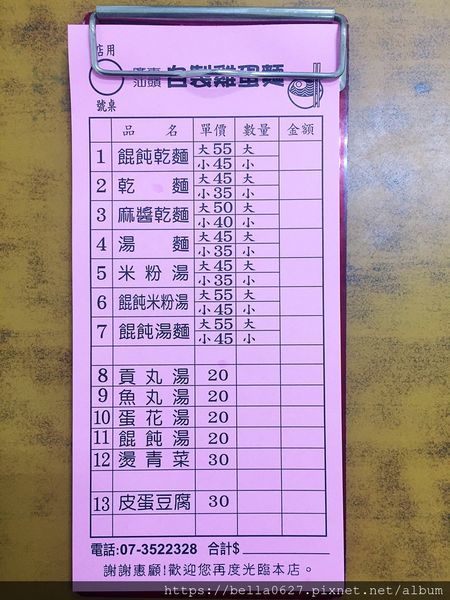 店用
廣東汕頭 自製雞蛋麵
號桌
品名 單價 數量 金額
1 餛飩乾麵 大55 大
小45 小
2 乾麵 大45 大
小35 小
3 麻醬乾麵 大50 大
小40 小
4 湯麵 大45 大
小35 小
5 米粉湯 大45 大
小35 小
6 餛飩米粉湯 大55 大
小45 小
7 餛飩湯麵 大55 大
小45 小
8 貢丸湯 20
9 魚丸湯 20
10 蛋花湯 20
11 餛飩湯 20
12 燙青菜 30
13 皮蛋豆腐 30
電話:07-3522328 合計$
謝謝惠顧!歡迎您再度光臨本店。
https://bella0627.pixnet.net/album